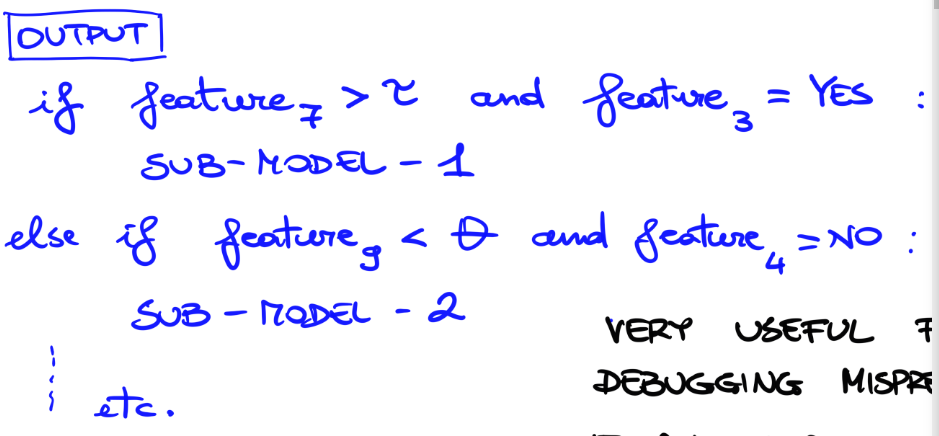 OUTPUT
if feature_7 > τ and feature_3 = YES :
SUB-MODEL-1
else if feature_9 < θ and feature_4 = NO :
SUB-MODEL-2
etc.
VERY USEFUL
DEBUGGING